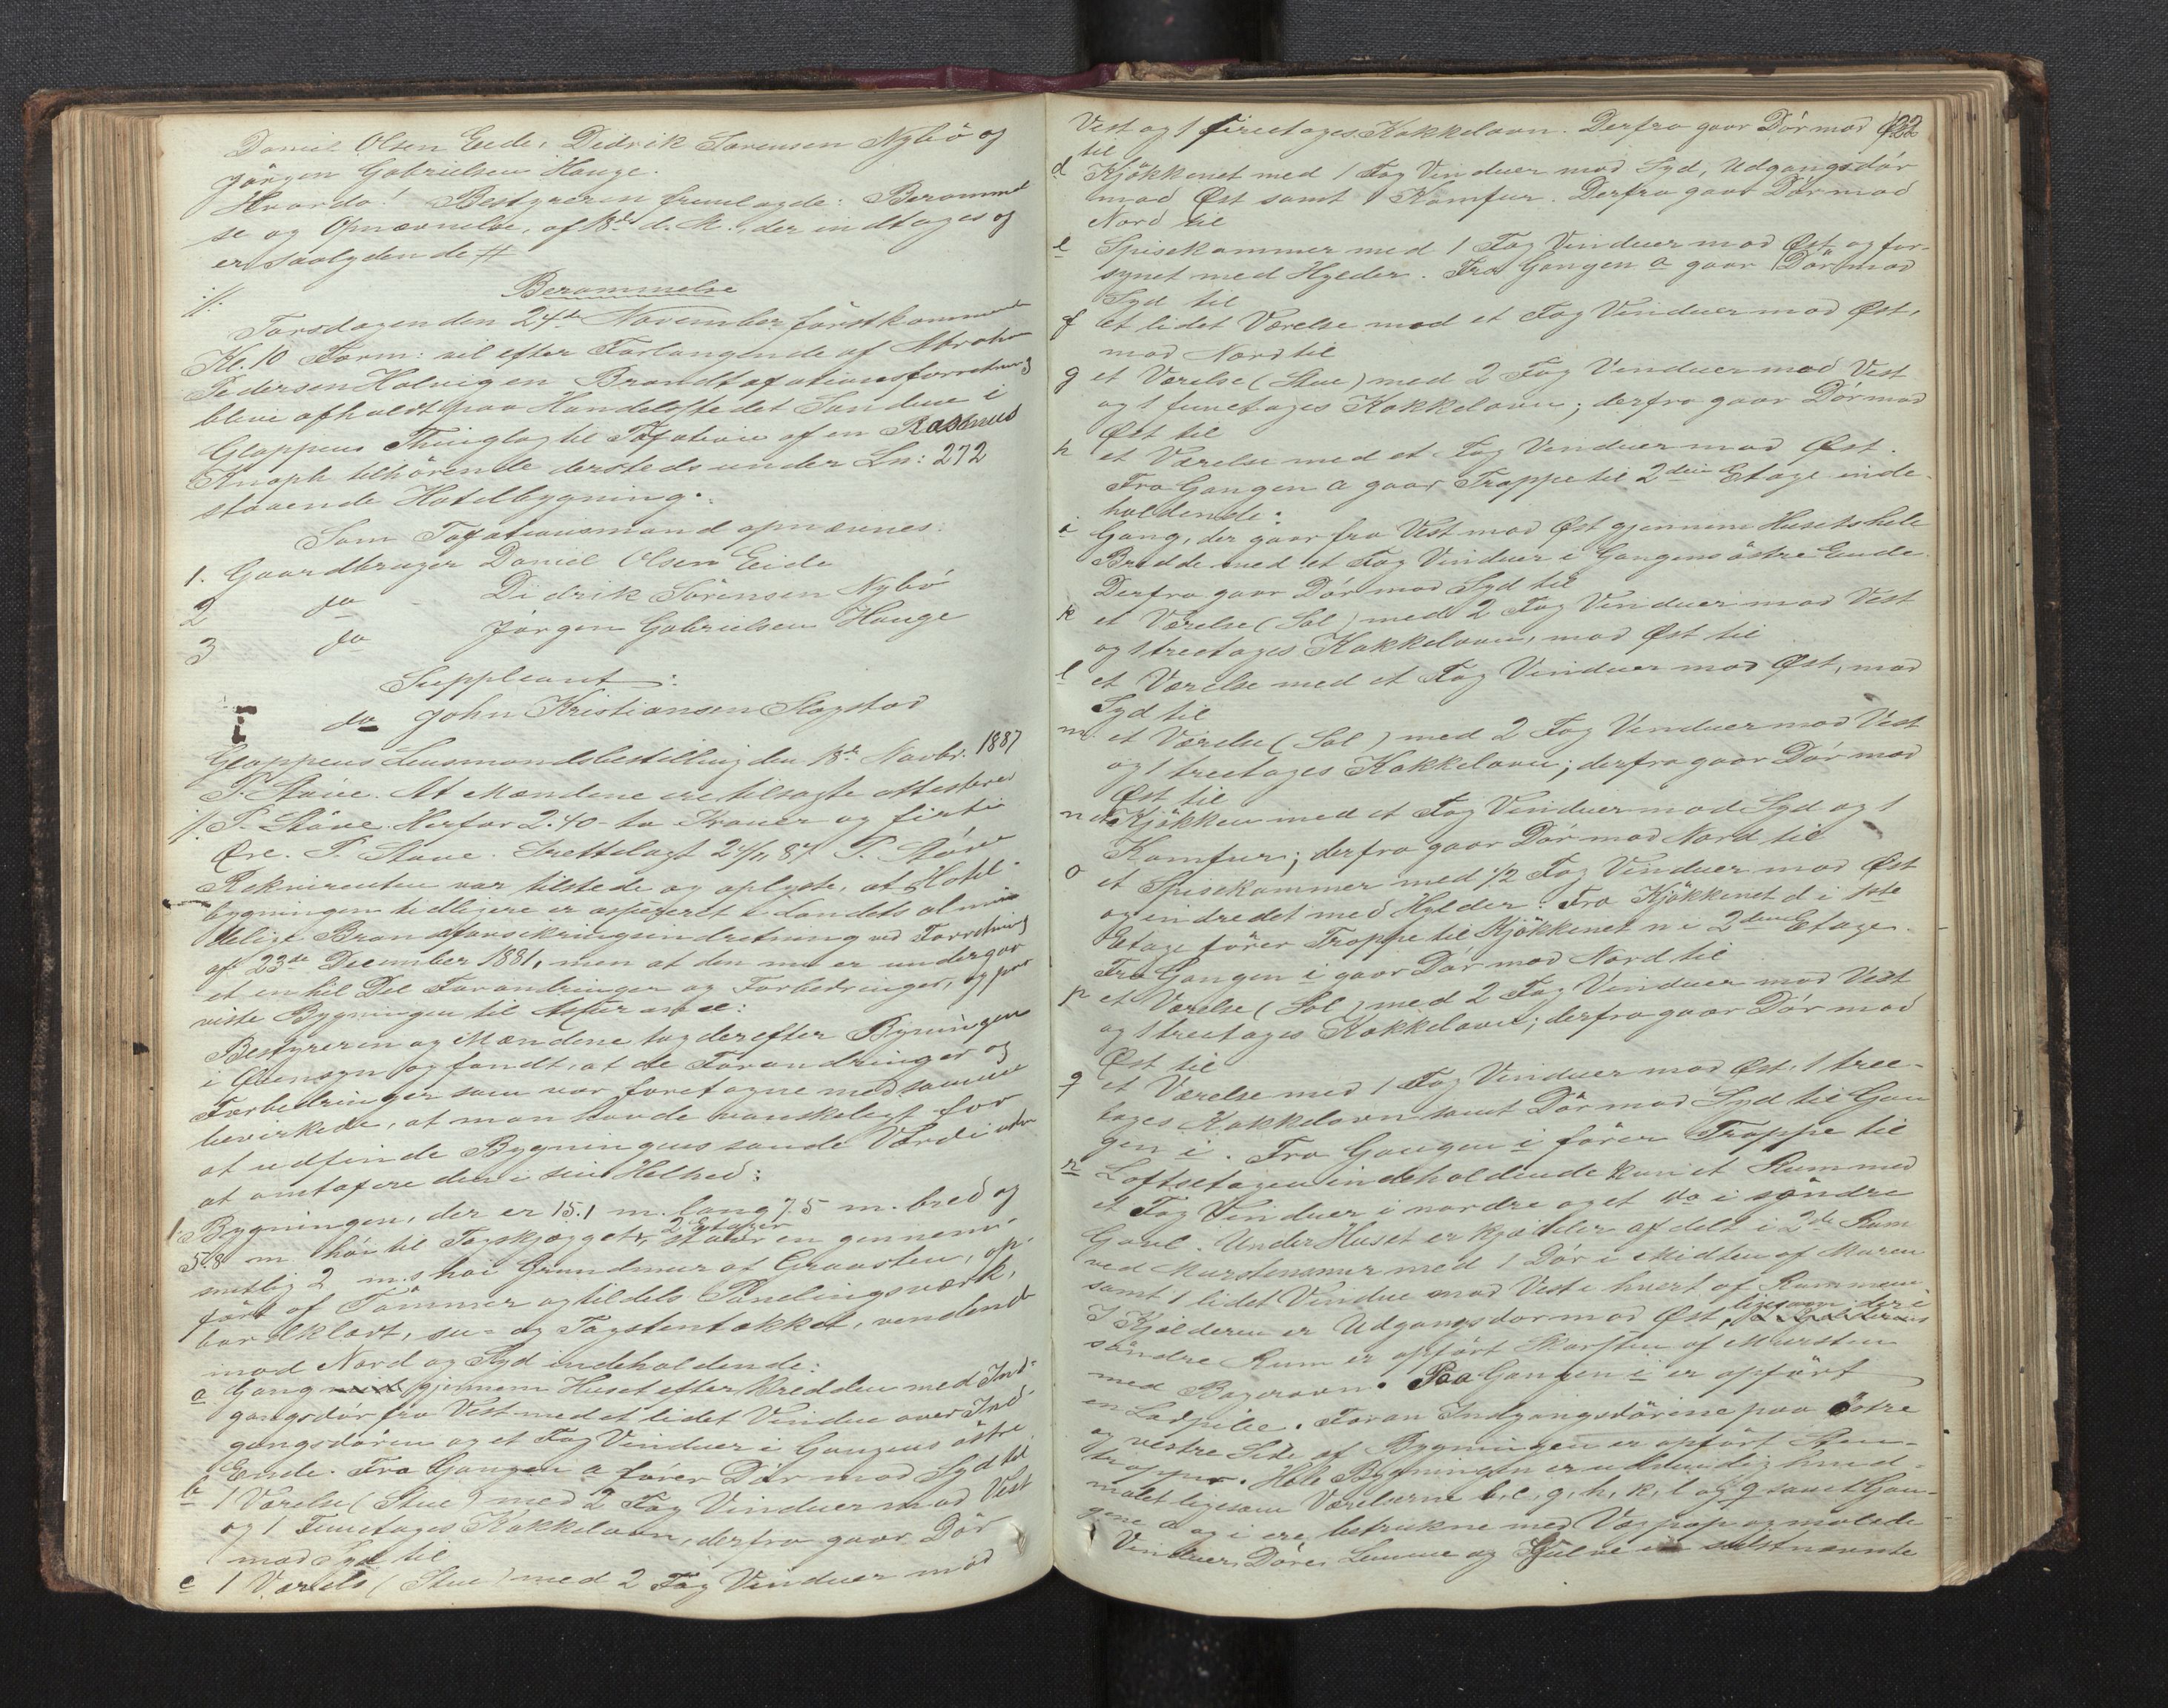 Daniel Olsen Eide, Didrik Sørensen Nybö og
Jörgen Gabrielsen Hauge.
Hvorda! Bestyreren fremlagde: Berammel
se og Opnævnelse, af 18de d. M., der indtages og
er saalydende #
:/: Berammelse
Torsdagen den 24de November förstkommende
Kl. 10 Form: vil efter Forlangende af Abraham
Pedersen Holvig en Brandtaxationsforretning
blive afholdt paa Handelsstedet Sandene i
Gloppens Thinglag til Taxation af en Rasmus
Knaph tilhörende dersteds under Ln: 272
staaende Hotelbygning.
Som Taxationsmænd opnævnes:
1. Gaardbruger Daniel Olsen Eide
2 do Didrik Sörensen Nybö
3 do Jörgen Gabrielsen Hauge
Suppleant:
do John Kristiansen Slagstad
Gloppens Lensmandsbestilling den 18de Novbr: 1887
T. Støve. At Mændene ere tilsagte attesteres
/: T. Støve. Herfor 2.40 - to Kroner og firti
Øre. T. Støve. Irettelagt 24/11 87 T. Støve
Rekvirenten var tilstede og oplyste, at Hotel-
bygningen tidligere er assureret i Landets almin
delige Brandforsikringsindretning ved Forretning
af 23de December 1881, men at den nu er undergaa
et en hel Del Forandringer og Forbedringer, og paa
viste Bygningen til Assurance:
Bestyreren og Mændene tog derefter Bygningen
i Øiensyn og fandt, at de Forandringer og
Forbedringer som var foretagne med samme
bevirkede, at man havde vanskeligt for
at udfinde Bygningens sande Værdi uden
at omtaxere den i sin Helhed:
1. Bygningen, der er 15.1 m. lang 7.5 m. bred og
5.8 m høi til Tagskjægget, 2 Etager staar en gennem-
snitlig 2 m.s høi Grundmur af Graasten, op-
fört af Tömmer og tildels Panelingsværk,
bordklædt, su- og Tagstentækket, vendende
mod Nord og Syd indeholdende:
a Gang gjennem Huset efter Bredden med Ind-
gangsdör fra Vest med et lidet Vindue over Ind-
gangsdören og et Fag Vinduer i Gangens östre
Ende. Fra Gangen a förer Dör mod Syd til
b 1 Værelse (Stue) med 2 Fag Vinduer mod Vest
og 1 Femetages Kakkelovn, derfra gaar Dör
mod Syd til
c 1 Værelse (Stue) med 2 Fag Vinduer mod
Vest og 1 Fireetages Kakkelovn. Derfra gaar Dör mod Øst
122
til
d Kjökkenet med 1 Fag Vinduer mod Syd, Udgangsdör
mod Øst samt 1 Komfur. Derfra gaar Dör mod
Nord til
e Spisekammer med 1 Fag Vinduer mod Øst og for-
synet med Hylder. Fra Gangen a gaar Dör mod
Syd til
f et lidet Værelse med et Fag Vinduer mod Øst,
mod Nord til
g et Værelse (Stue) med 2 Fag Vinduer mod Vest
og 1 femetages Kakkelovn; derfra gaar Dör mod
Øst til
h et Værelse med et Fag Vinduer mod Øst.
Fra Gangen a gaar Trappe til 2den Etage inde-
holdende:
i Gang, der gaar fra Vest mod Øst gjennem Husets hele
Bredde med et Fag Vinduer i Gangens östre Ende.
Derfra gaar Dör mod Syd til
k et Værelse (Sal) med 2 Fag Vinduer mod Vest
og 1 treetages Kakkelovn, mod Øst til
l et Værelse med et Fag Vinduer mod Øst, mod
Syd til
m. et Værelse (Sal) med 2 Fag Vinduer mod Vest
og 1 treetages Kakkelovn; derfra gaar Dör mod
Øst til
n do Kjökken med et Fag Vinduer mod Syd og 1
Komfur; derfra gaar Dör mod Nord til
o et Spisekammer med 1/2 Fag Vinduer mod Øst
og indredet med Hylder. Fra Kjökkenet d i 1ste
Etage förer Trappe til Kjökkenet n i 2den Etage.
Fra Gangen i gaar Dör mod Nord til
p et Værelse (Sal) med 2 Fag Vinduer mod Vest
og 1 treetages Kakkelovn; derfra gaar Dör mod
Øst til
q et Værelse med 1 Fag Vinduer mod Øst, 1 tree-
tages Kakkelovn samt Dör mod Syd til Gan
gen i. Fra Gangen i förer Trappe til
r Loftsetagen indeholdende kun et Rum med
et Fag Vinduer i nordre og et do i söndre
Gavl. Under Huset er Kjælder afdelt i 2de Rum
ved Murstensmur med 1 Dör i Midten af Muren
samt 1 lidet Vindue mod Vest i hvert af Rummene.
I Kjælderen er Udgangsdor mod Øst, ligesom der i
söndre Rum er opfört Skorsten af Mursten
med Bagerovn. Paa Gangen i er opfört
en Ladpibe. Foran Indgangsdörene paa östre
og vestre Side af Bygningen er opfört Sten-
trapper. Hele Bygningen er udvendig hvid-
malet ligesom Værelserne b, c, g, h, k, l og q samt Gan-
gene a og i ere bestrukne med Væegpap og malede
Vinduer, Döre, Lemme og Gulve i sidstnævnte